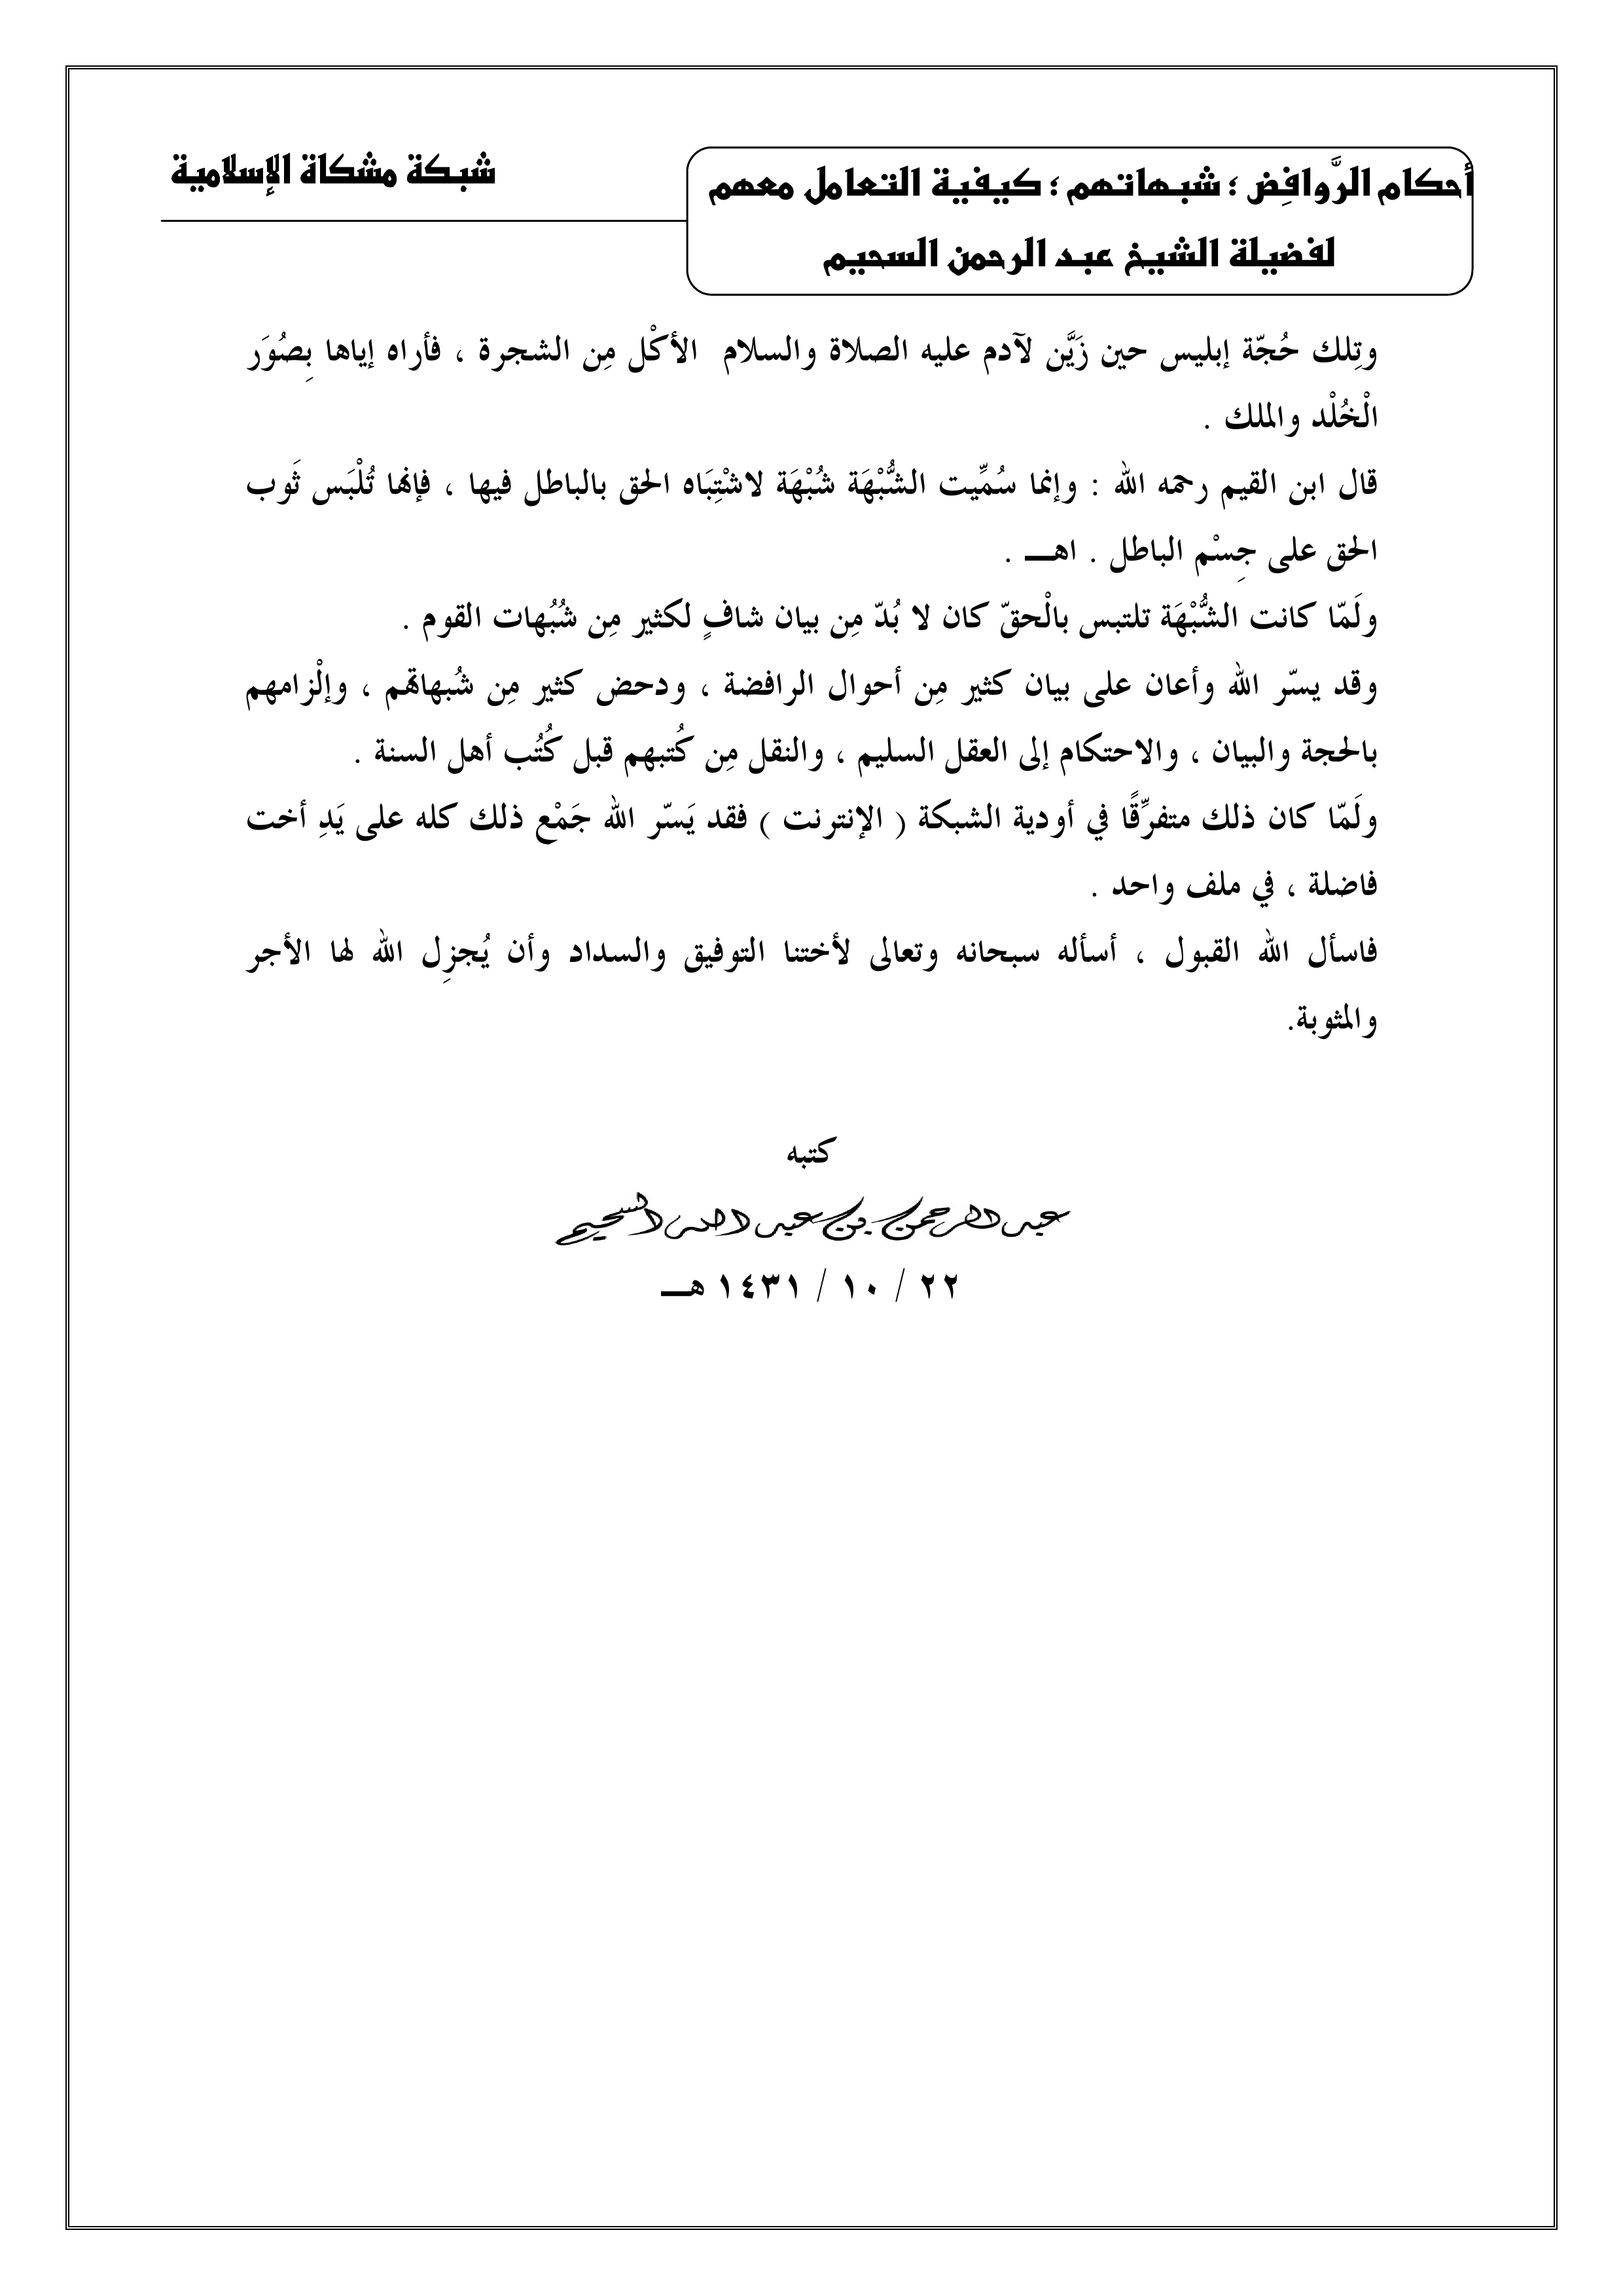 أحكام الرَّوافِض ؛ شبهاتهم ؛ كيفية التعامل معهم
لفضيلة الشيخ عبد الرحمن السحيم
شبكة مشكاة الإسلامية
وتِلك حُجّة إبليس حين زَيَّن لآدم عليه الصلاة والسلام الأكْل مِن الشجرة ، فأراه إياها بِصُوَر
الْخُلْد والملك .
قال ابن القيم رحمه الله : وإنما سُمِّيت الشُّبْهَة شُبْهَة لاشْتِبَاه الحق بالباطل فيها ، فإنها تُلْبَس ثَوب
الحق على جِسْم الباطل . اهـــ .
ولَمّا كانت الشُّبْهَة تلتبس بالْحقّ كان لا بُدّ مِن بيان شافٍ لكثير مِن شُبُهات القوم .
وقد يسّر الله وأعان على بيان كثير مِن أحوال الرافضة ، ودحض كثير مِن شُبهاتهم ، وإلْزامهم
بالحجة والبيان ، والاحتكام إلى العقل السليم ، والنقل مِن كُتبهم قبل كُتُب أهل السنة .
ولَمّا كان ذلك متفرِّقًا في أودية الشبكة ( الإنترنت ) فقد يَسّر الله جَمْع ذلك كله على يَدِ أخت
فاضلة ، في ملف واحد .
فاسأل الله القبول ، أسأله سبحانه وتعالى لأختنا التوفيق والسداد وأن يُجزِل الله لها الأجر
والمثوبة.
كتبه
عبد الرحمن بن عبد الله السحيم
٢٢ / ١٠ / ١٤٣١ هـــ